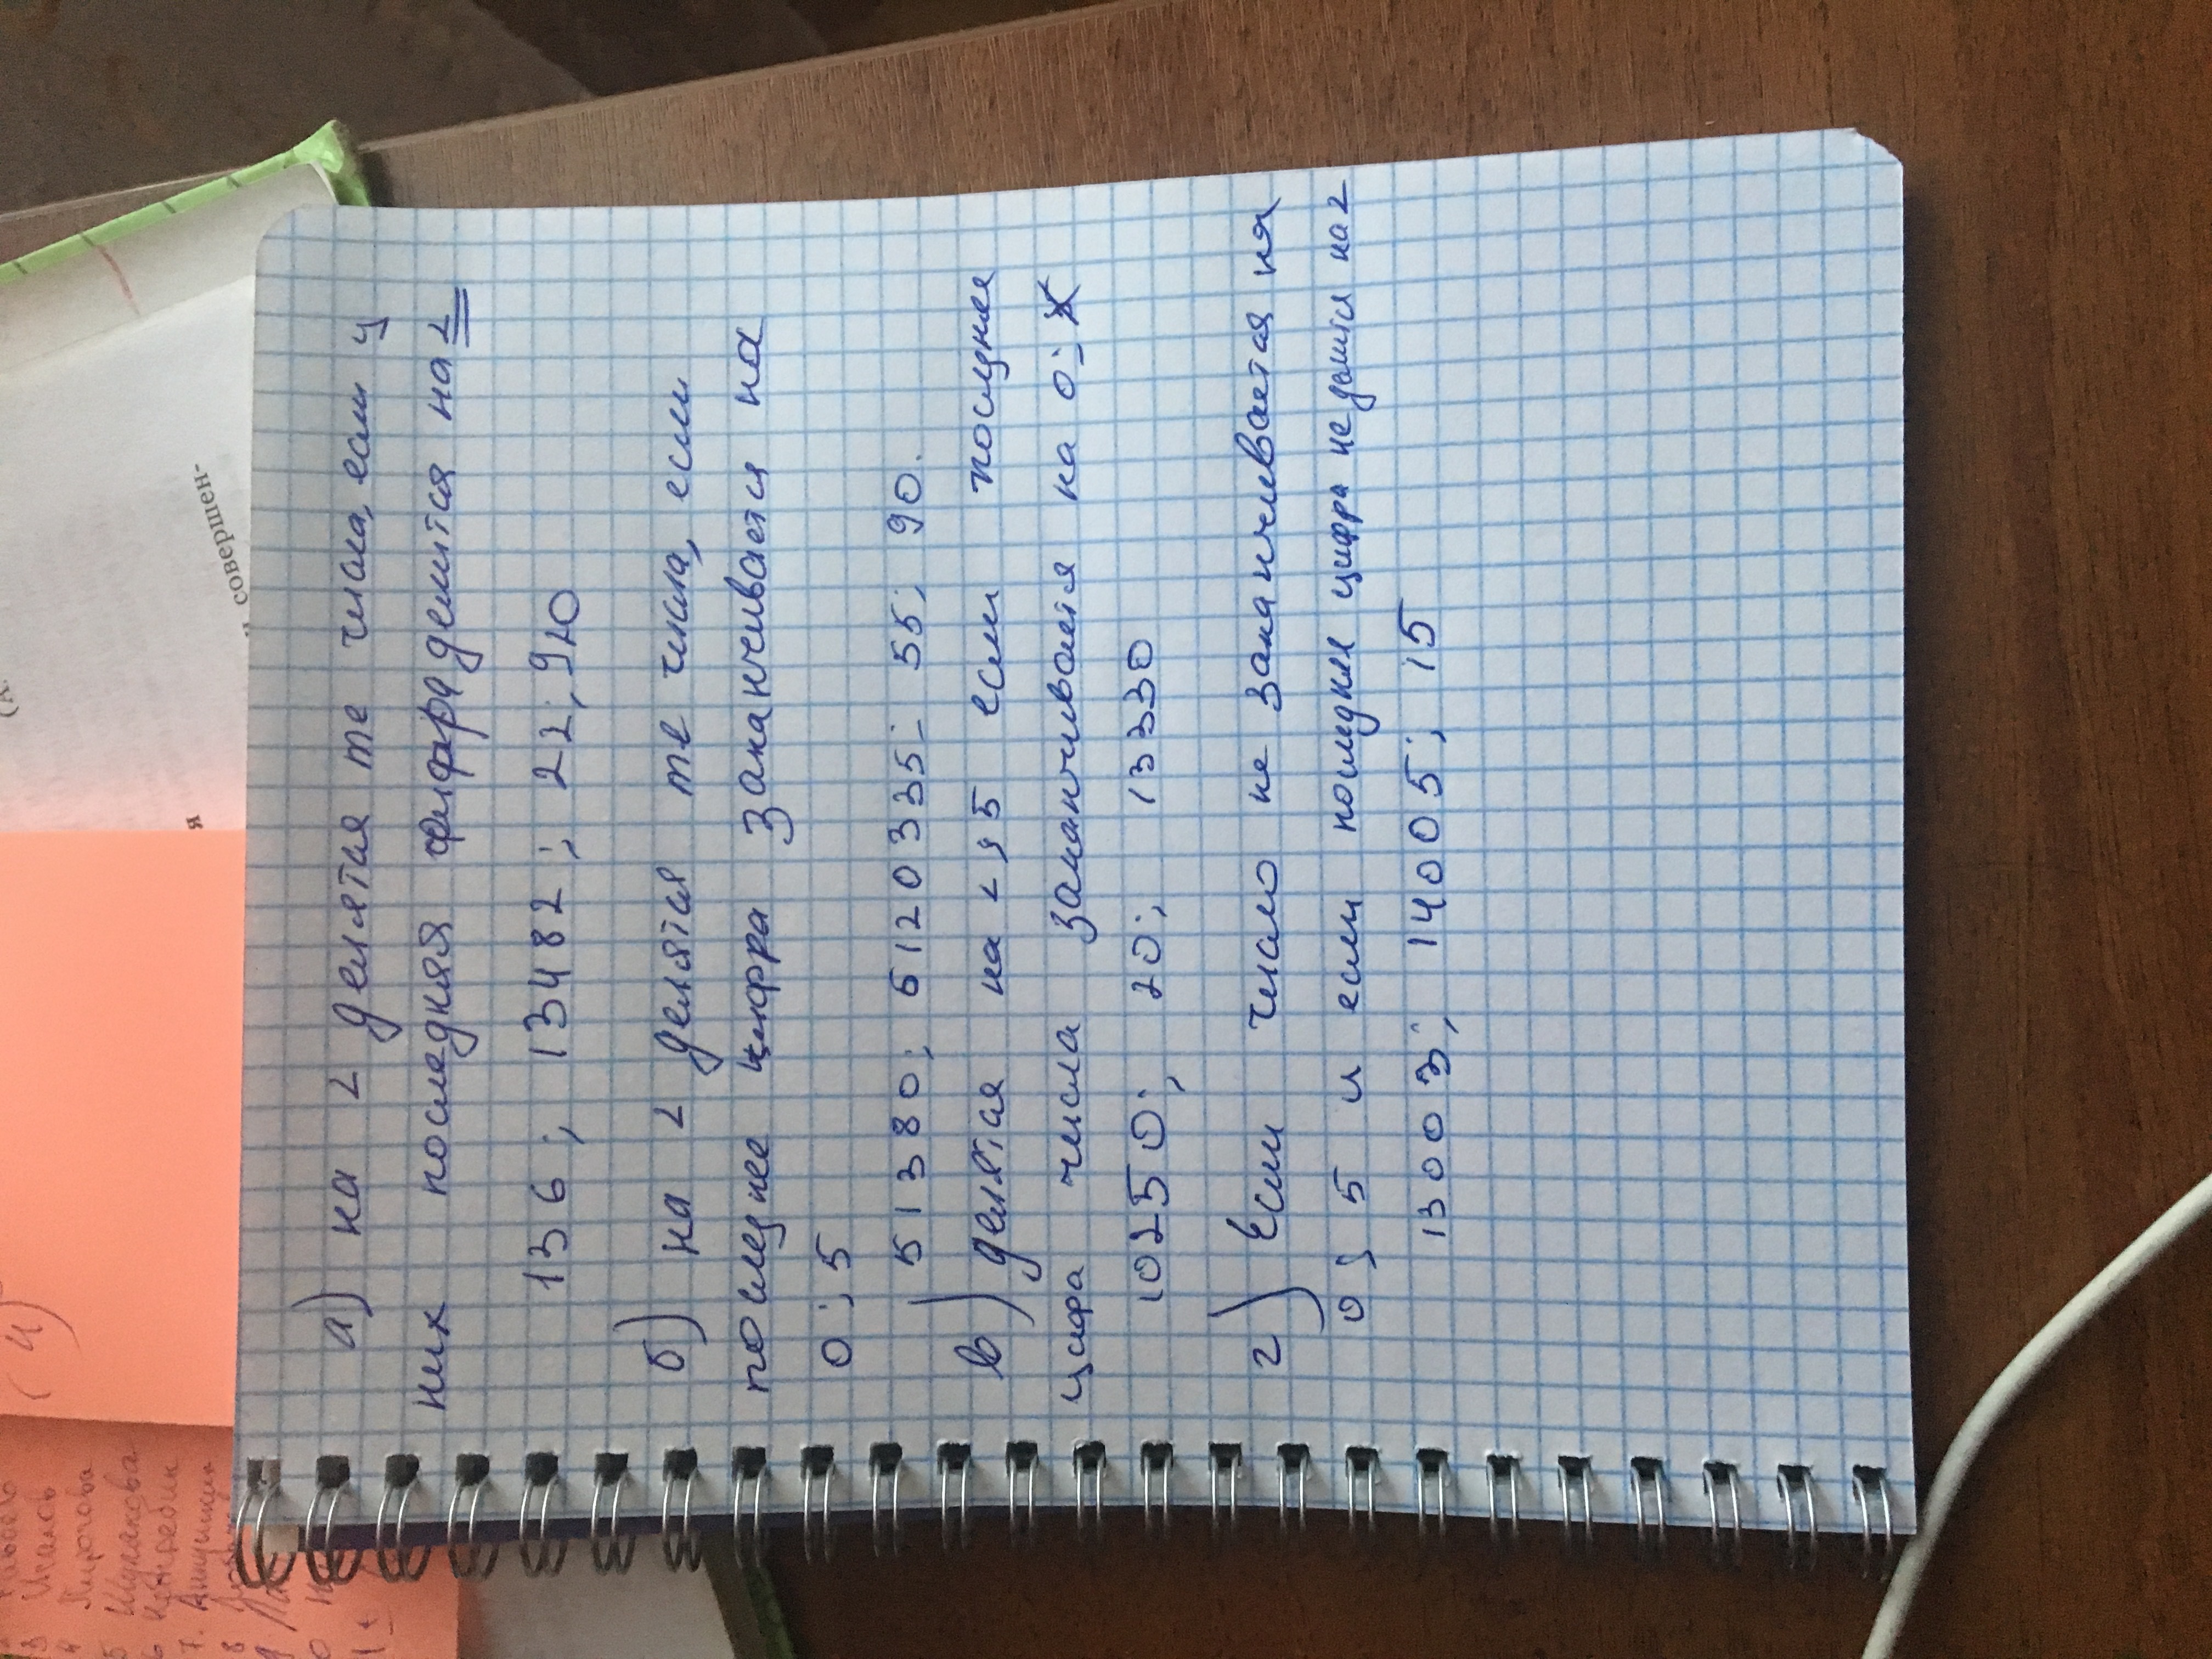 а) на 2 делятся те числа, если у
них последняя цифра делится на 2
136; 13482; 22; 920
б) на 2 делятся те числа, если
последнее цифра заканчивается на
0; 5
51380; 6120335; 55; 90.
в) делятся на 2, 5 если последняя
цифра числа заканчивается на 0;
10250; 20; 13330
г) Если число не заканчивается на
0; 5 и если последняя цифра не делится на 2
13003; 14005; 15
й совершен-
я
(4)